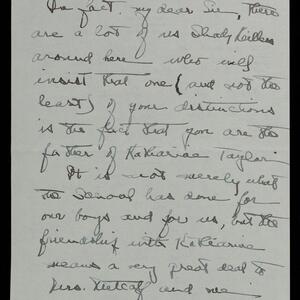 In fact, my dear Sir, there
are a lot of us Shady
around here who will
insist that one (and not the
least) of your distinctions
is the fact that you are the
father of Katharine Taylor.
It is not merely what
the School has done for
our boys and for us, but the
friendship with Katharine
means a very great deal to
Mrs. Metcalf and me